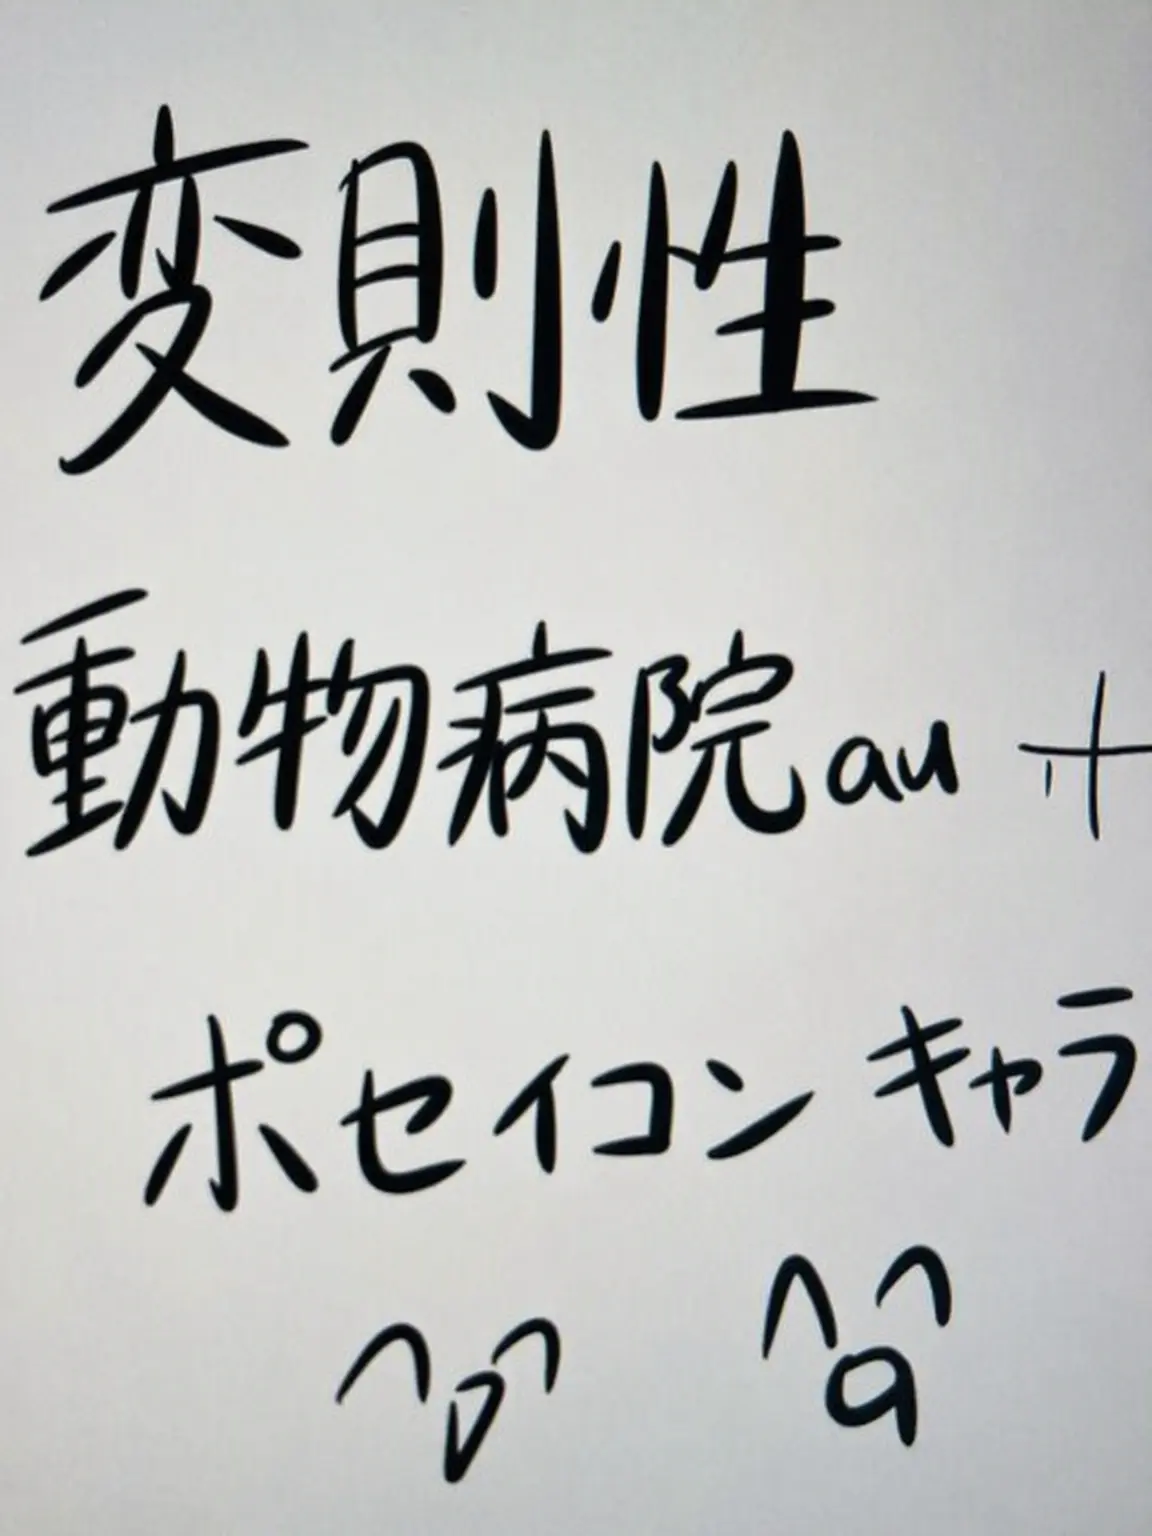 変則性
動物病院au
ポセイコンキャラ